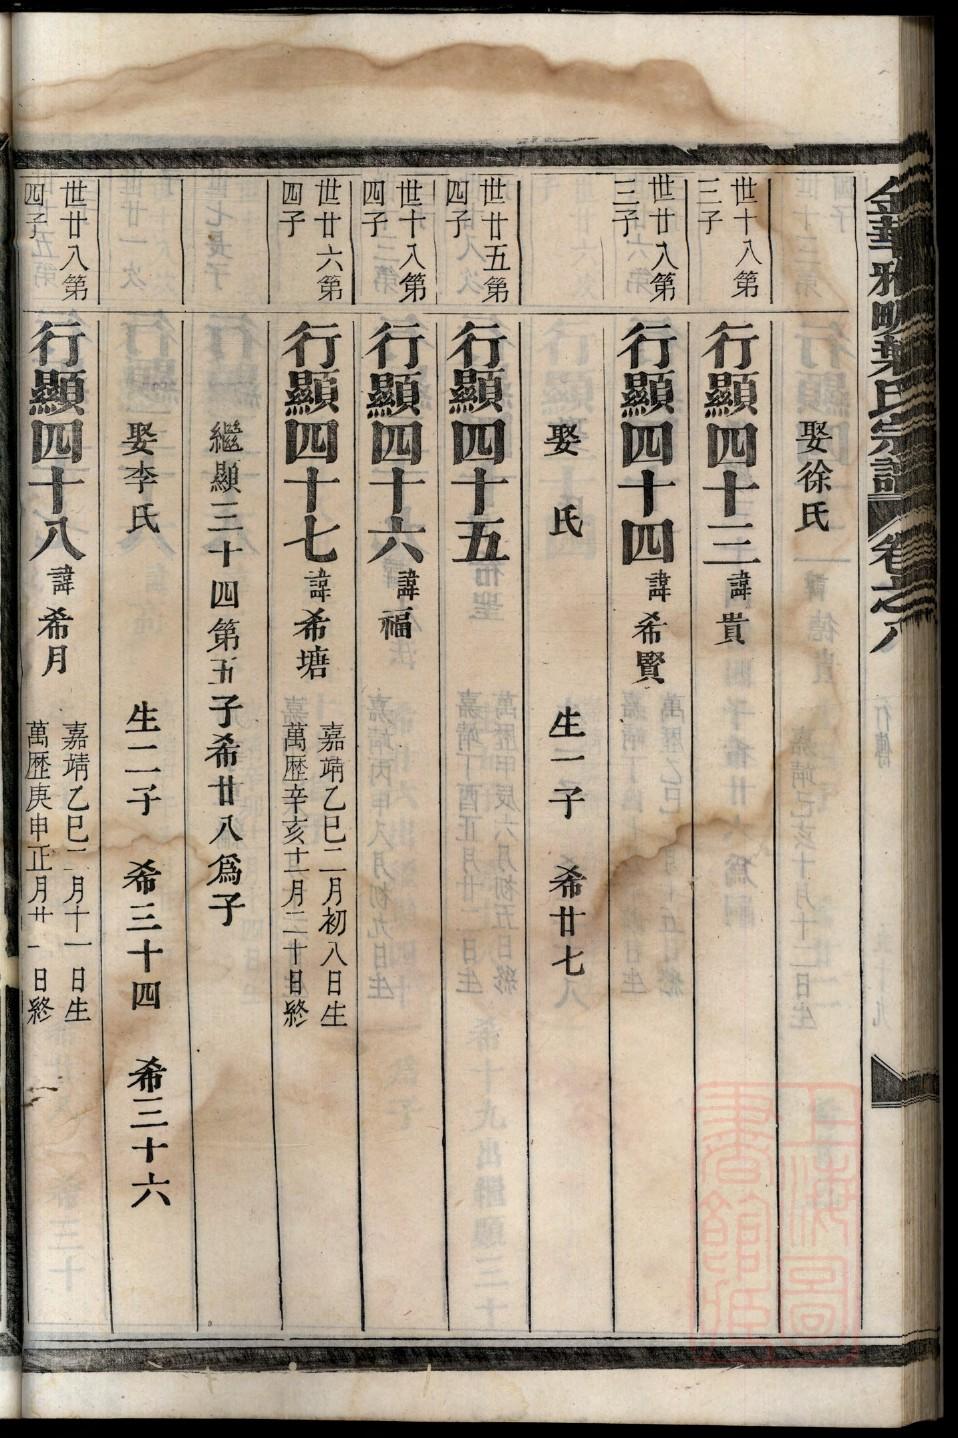 金華雅畈葉氏宗譜 卷之八
娶徐氏
世十八第三子 行顯四十三 諱貴
世廿八第三子 行顯四十四 諱希賢
娶 氏 生一子 希廿七
世廿五第四子 行顯四十五
世十八第四子 行顯四十六 諱福
世廿六第四子 行顯四十七 諱希塘 嘉靖乙巳二月初八日生 萬歷辛亥十一月二十日終
繼顯三十四第五子希廿八爲子
娶李氏 生二子 希三十四 希三十六
世廿八第四子 行顯四十八 諱希月 嘉靖乙巳二月十一日生 萬歷庚申正月廿一日終
上海圖書館藏